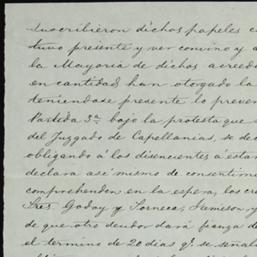 suscribieron dichos papeles
tuvo presente y ver convino y
la Mayoria de dichos acreed
en cantidad, han otorgado la
teniendose presente lo preve
Partida 3ª bajo la protesta que
del Juzgado de Capellanias, se de
obligando á los disencientes á estar
declara asi mismo de consentim
comprehenden en la espera, los cre
Sres Goday y Torneca, Jemison, y
de que otro deudor dará fianza d
el termino de 20 dias qe se señal